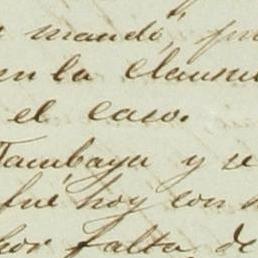 mandó,
en la clausu
el caso.
Tambaya y se
fué hoy con
por falta de